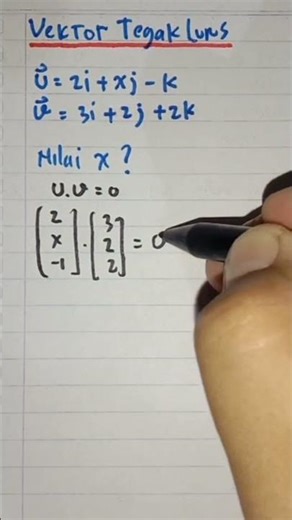 Vektor Tegak Lurus
u⃗ = 2i + xj - k
v⃗ = 3i + 2j + 2k
Nilai x ?
u.v = 0
(2 x -1] . [3 2 2] = 0